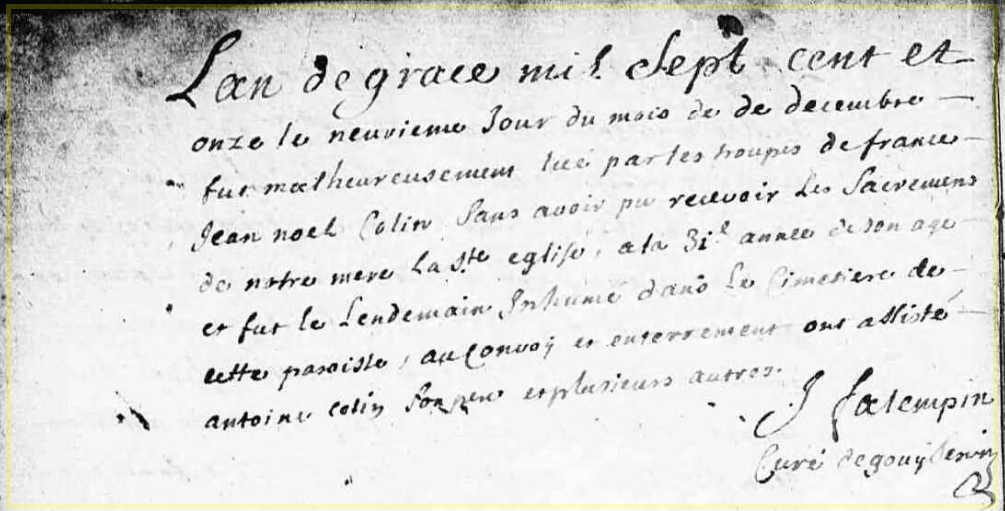 Lan de grace mil Sept cent et
onze le neuvieme Jour du mois de de decembre
fut malheureusement tué par les troupes de france
Jean noel Colin Sans avoir pu recevoir Les Sacremens
de notre mere La Ste eglise, a la 31e année de son age
et fut le Lendemain Inhumé dans Le Cimetiere de
cette paroisse, au Convoÿ et enterrement ont assisté
antoine colin Son pere et plusieurs autres.
J Falempin
Curé de gouÿ